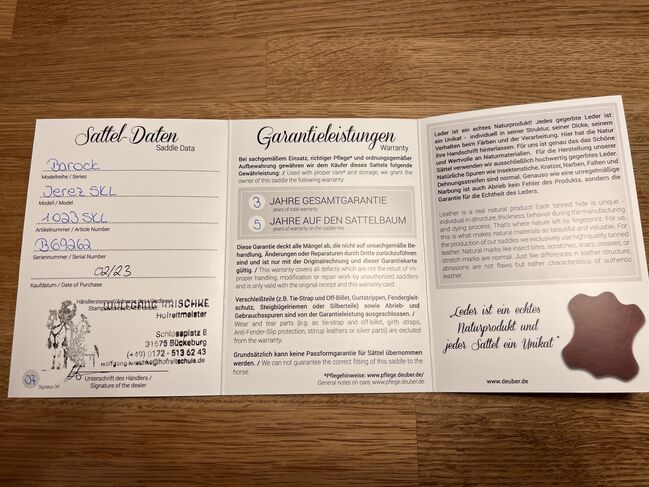 Sattel-Daten
Saddle Data
Barock
Modellreihe / Series
Jerez SKL
Modell / Model
1023 SKL
Artikelnummer / Article Number
B69262
Seriennummer / Serial Number
02/23
Kaufdatum / Date of Purchase
Händlerstempel/Adresse des Händlers
WOLFGANG KRISCHKE
Hofreitmeister
Schlossplatz 8
31675 Bückeburg
(+49) 0172 - 513 62 43
wolfgang.krischke@hofreitschule.de
Unterschrift des Händlers /
Signature of the dealer
Signatur DP
Garantieleistungen
Warranty
Bei sachgemäßem Einsatz, richtiger Pflege* und ordnungsgemäßer
Aufbewahrung gewähren wir dem Käufer dieses Sattels folgende
Gewährleistung: / Used with proper care* and storage, we grant the
owner of this saddle the following warranty:
3 JAHRE GESAMTGARANTIE
years of total warranty
5 JAHRE AUF DEN SATTELBAUM
years of warranty on the saddle tree
Diese Garantie deckt alle Mängel ab, die nicht auf unsachgemäße Be-
handlung, Änderungen oder Reparaturen durch Dritte zurückzuführen
sind und ist nur mit der Originalrechnung und dieser Garantiekarte
gültig. / This warranty covers all defects which are not the result of im-
proper handling, modification or repair work by unauthorized saddlers
and is only valid with the original receipt and this warranty card.
Verschleißteile (z.B. Tie-Strap und Off-Billet, Gurtstrippen, Fendergleit-
schutz, Steigbügelriemen oder Silberteile) sowie Abrieb- und
Gebrauchsspuren sind von der Garantieleistung ausgeschlossen. /
Wear and tear parts (e.g. as tie-strap and off-billet, girth straps,
Anti-Fender-Slip protection, stirrup leathers or silver parts) are excluded
from the warranty.
Grundsätzlich kann keine Passformgarantie für Sättel übernommen
werden. / We can not guarantee the correct fitting of this saddle to the
horse.
*Pflegehinweise: www.pflege.deuber.de/
General notes on care: www.pflege.deuber.de
Leder ist ein echtes Naturprodukt! Jedes gegerbte Leder ist
ein Unikat - individuell in seiner Struktur, seiner Dicke, seinem
Verhalten beim Färben und der Verarbeitung. Hier hat die Natur
ihre Handschrift hinterlassen. Für uns ist genau das das Schöne
und Wertvolle an Naturmaterialien. Für die Herstellung unserer
Sättel verwenden wir ausschließlich hochwertig gegerbtes Leder.
Natürliche Spuren wie Insektenstiche, Kratzer, Narben, Falten und
Dehnungsstreifen sind normal. Genauso wie eine unregelmäßige
Narbung ist auch Abrieb kein Fehler des Produkts, sondern die
Garantie für die Echtheit des Leders.
Leather is a real natural product! Each tanned hide is unique -
individual in structure, thickness, behavior during the manufacturing
and dying process. That's where nature left its fingerprint. For us,
this is what makes natural materials so beautiful and valuable. For
the production of our saddles we exclusively use high-quality tanned
leather. Natural marks like insect bites, scratches, scars, creases, or
stretch marks are normal. Just like differences in leather structure,
abrasions are not flaws but rather characteristics of authentic
leather.
„Leder ist ein echtes
Naturprodukt und
jeder Sattel ein Unikat."
www.deuber.de